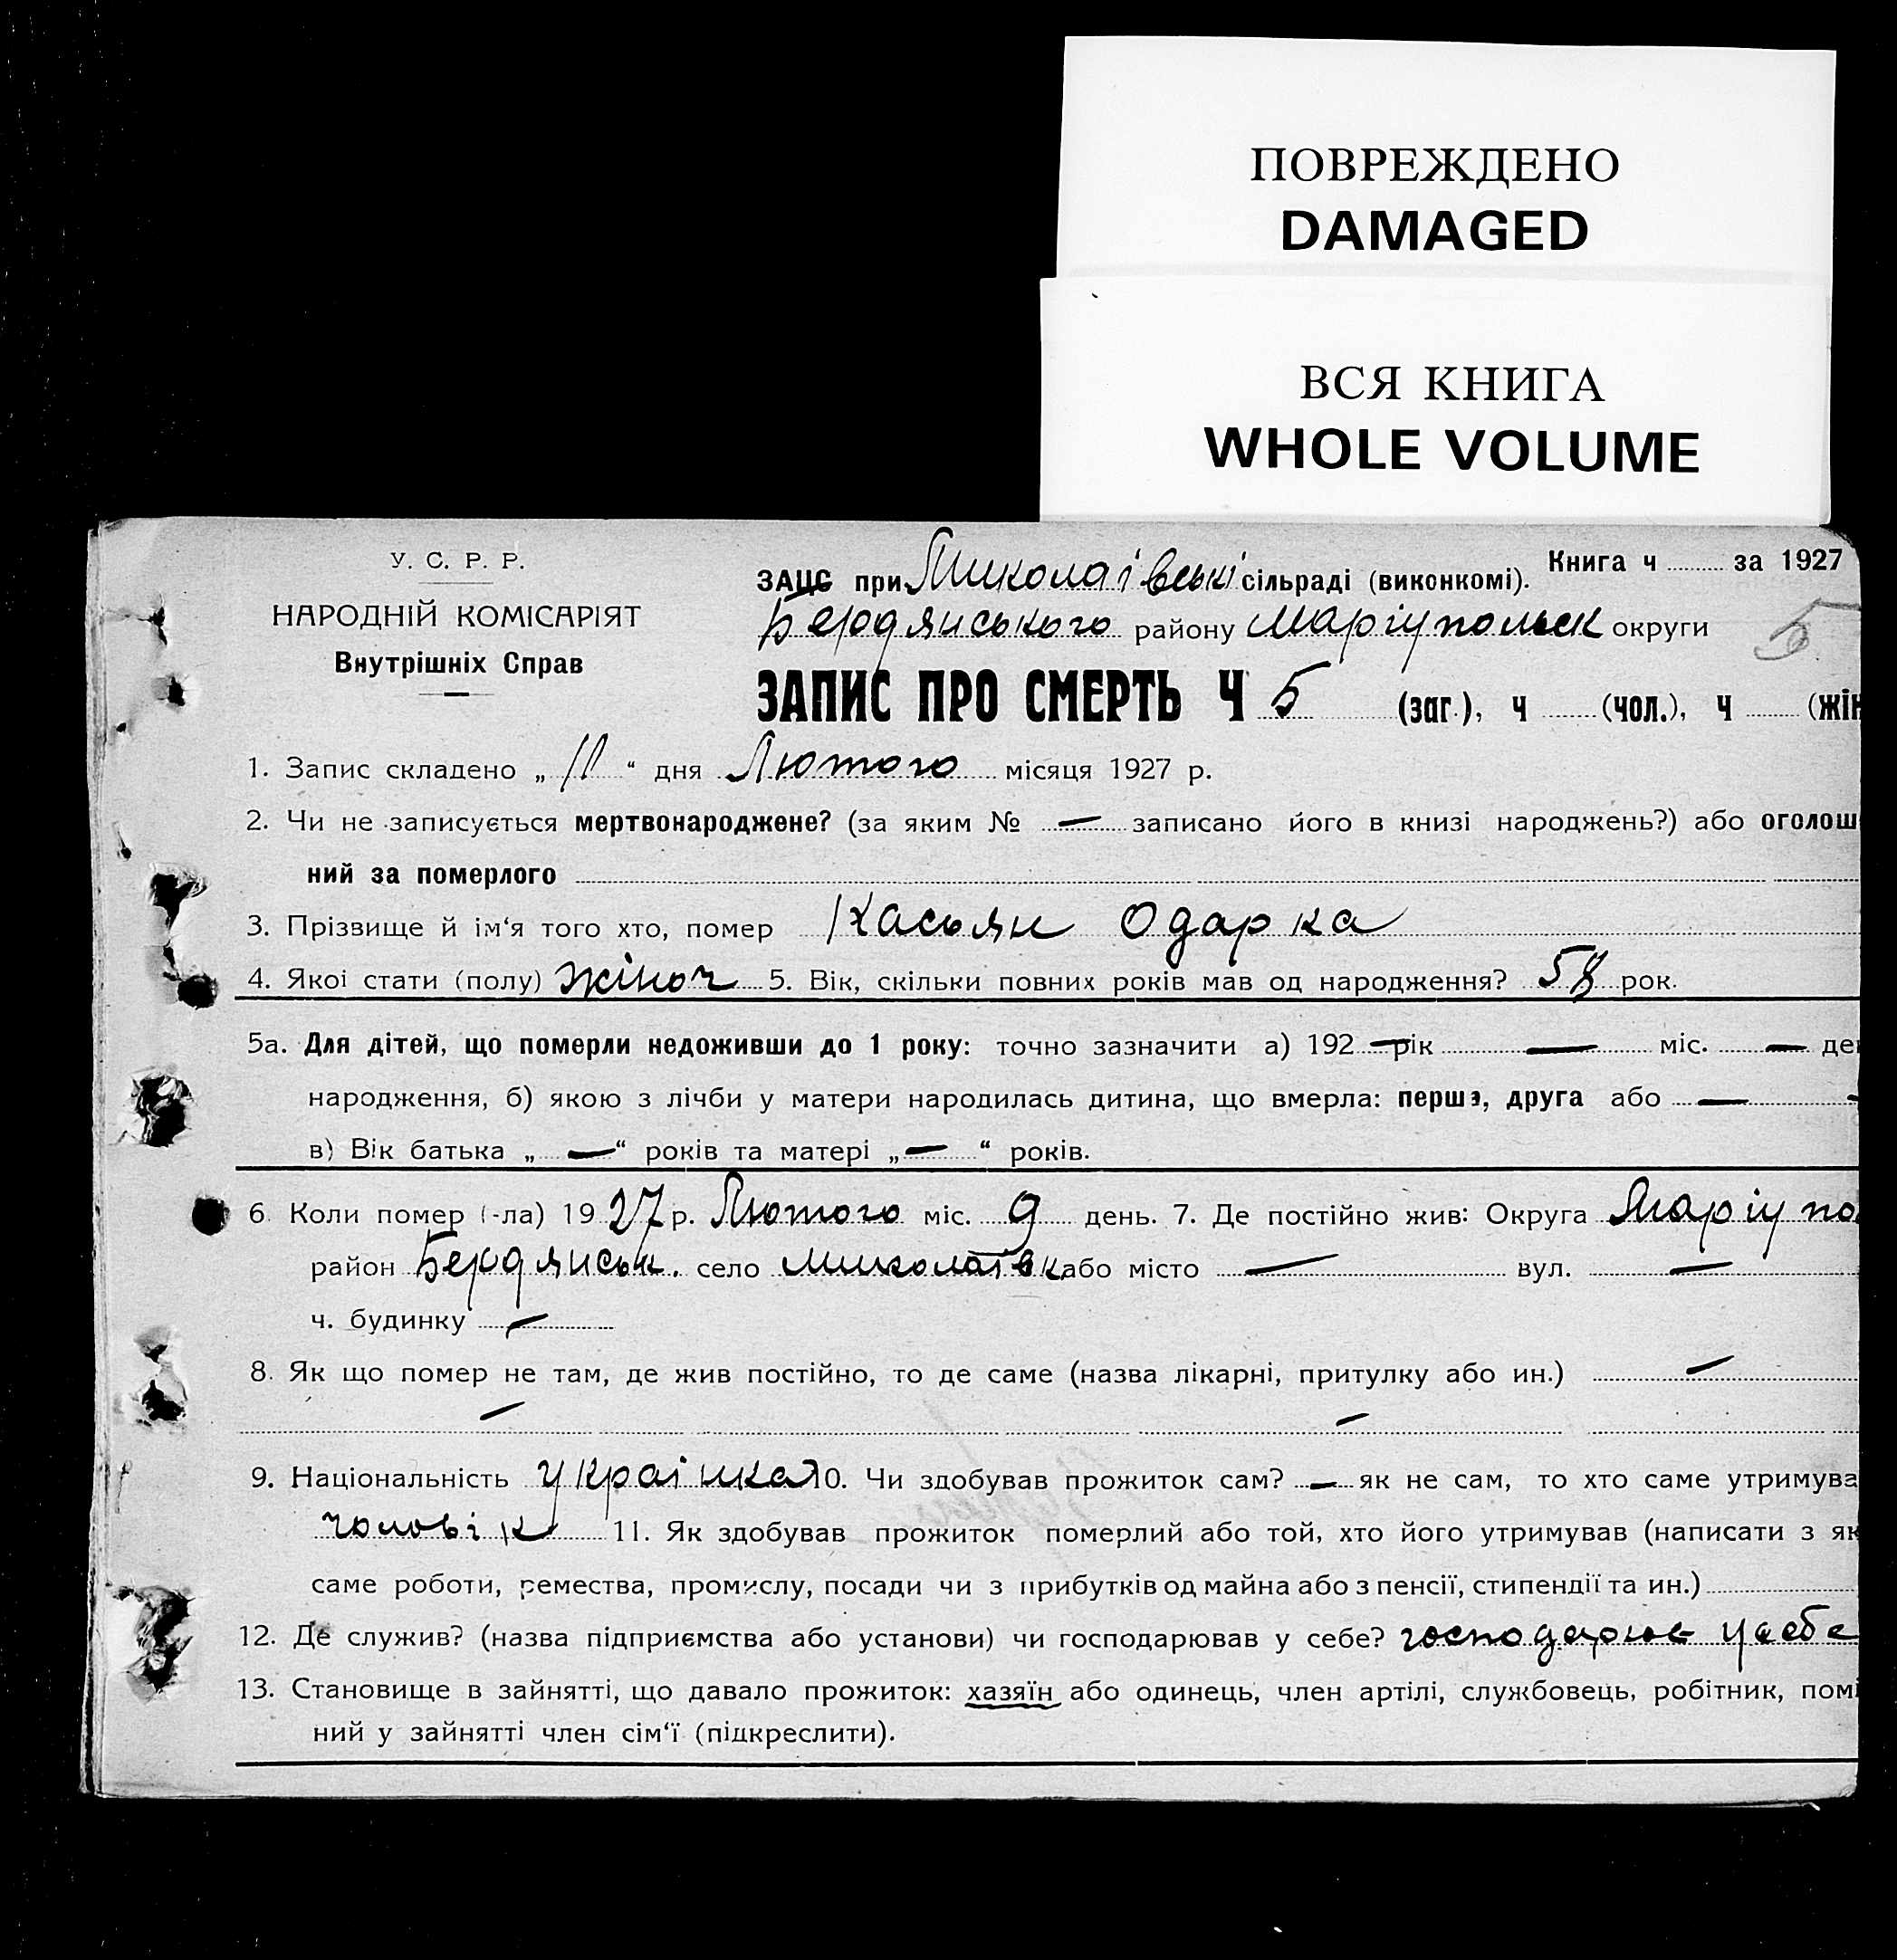 ПОВРЕЖДЕНО
DAMAGED
ВСЯ КНИГА
WHOLE VOLUME
У. С. Р. Р.
НАРОДНІЙ КОМІСАРІЯТ
Внутрішніх Справ
Книга ч ... за 1927
ЗАЦС при Миколаївські сільраді (виконкомі).
Бердянського району Маріупольськ округи
5
ЗАПИС ПРО СМЕРТЬ Ч 5 (заг.), ч ... (чол.), ч ... (жін
1. Запис складено „ 11 “ дня Лютого місяця 1927 р.
2. Чи не записується мертвонароджене? (за яким № — записано його в книзі народжень?) або оголош
ний за померлого
3. Прізвище й ім‘я того хто, помер Касьян Одарка
4. Якої стати (полу) жіноч 5. Вік, скільки повних років мав од народження? 58 рок.
5а. Для дітей, що померли недоживши до 1 року: точно зазначити а) 192 — рік — міс. — де
народження, б) якою з лічби у матери народилась дитина, що вмерла: перша, друга або —
в) Вік батька „ — “ років та матері „ — “ років.
6. Коли помер (-ла) 1927 р. Лютого міс. 9 день. 7. Де постійно жив: Округа Маріупо
район Бердянськ. село Миколаївк або місто — вул. —
ч. будинку —
8. Як що помер не там, де жив постійно, то де саме (назва лікарні, притулку або ин.) —
— —
9. Національність українка 10. Чи здобував прожиток сам? — як не сам, то хто саме утримува
чоловік 11. Як здобував прожиток померлий або той, хто його утримував (написати з як
саме роботи, ремества, промислу, посади чи з прибутків од майна або з пенсії, стипендії та ин.)
12. Де служив? (назва підприємства або установи) чи господарював у себе? господарює у себе
13. Становище в зайнятті, що давало прожиток: хазяїн або одинець, член артілі, службовець, робітник, помі
ний у зайнятті член сім‘ї (підкреслити).